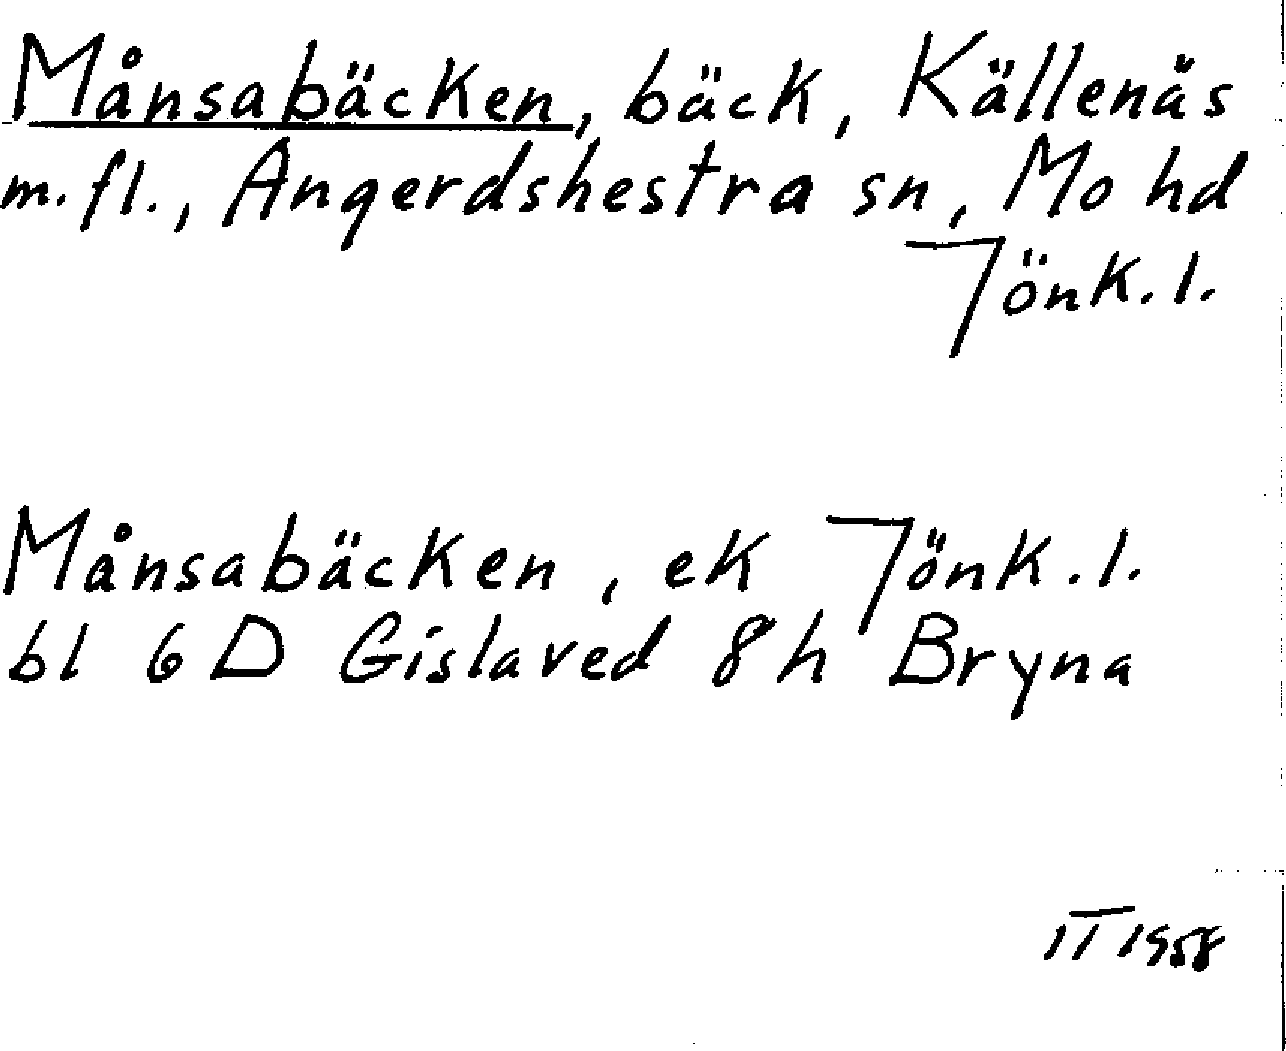 Månsabäcken, bäck, Källenås
m.fl., Angerdshestra sn, Mo hd
Jönk.l.
Månsabäcken, ek Jönk.l.
bl 6 D Gislaved 8h Bryna
IT 1958